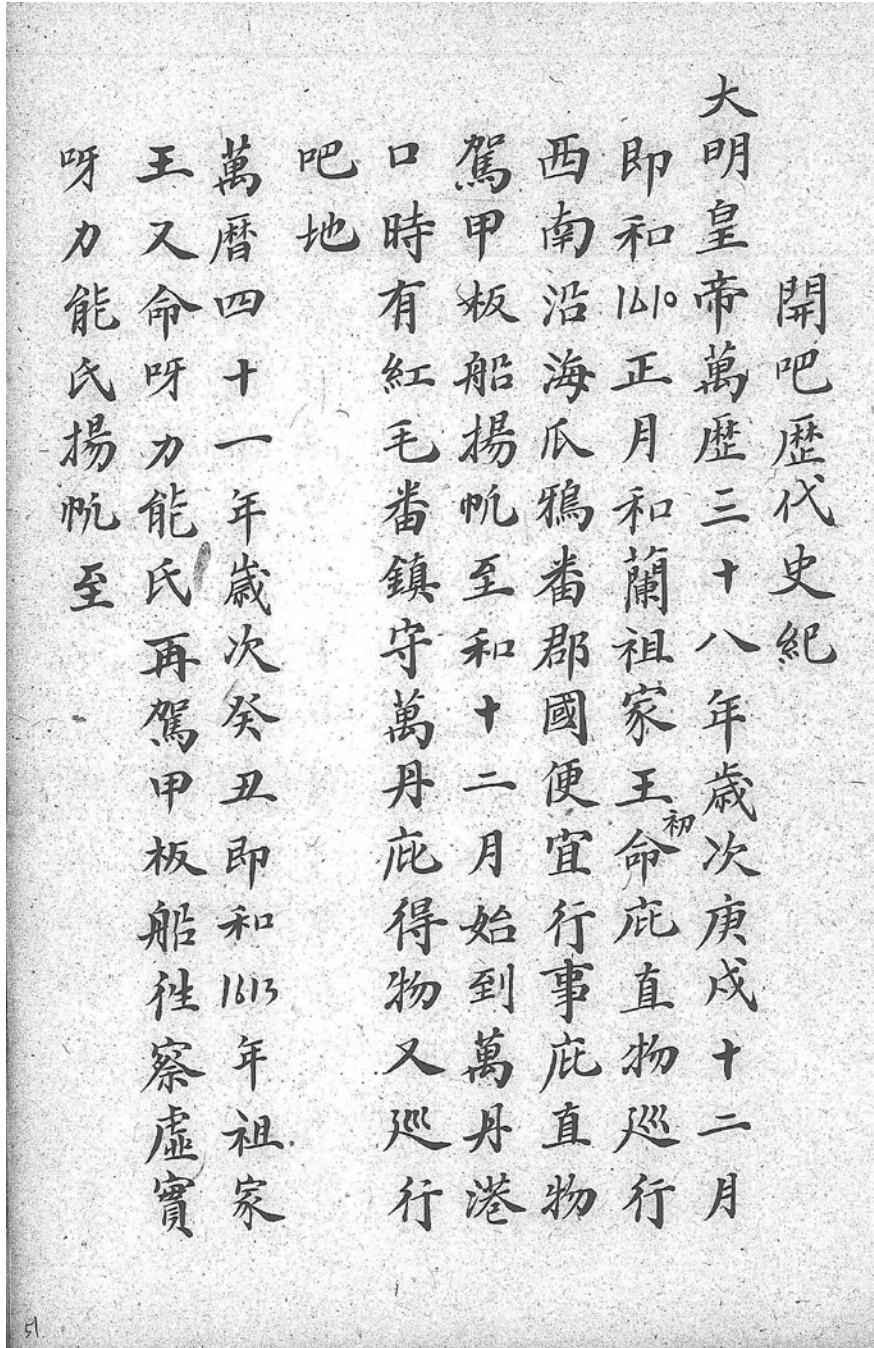 開吧歷代史紀
大明皇帝萬歷三十八年歲次庚戌十二月
即和1610正月和蘭祖家王初命庇直物巡行
西南沿海爪鴉番郡國便宜行事庇直物
駕甲板船揚帆至和十二月始到萬丹港
口時有紅毛番鎮守萬丹庇得物又巡行
吧地
萬暦四十一年歲次癸丑即和1613年祖家
王又命呀力能氏再駕甲板船徃察虛實
呀力能氏揚帆至
51